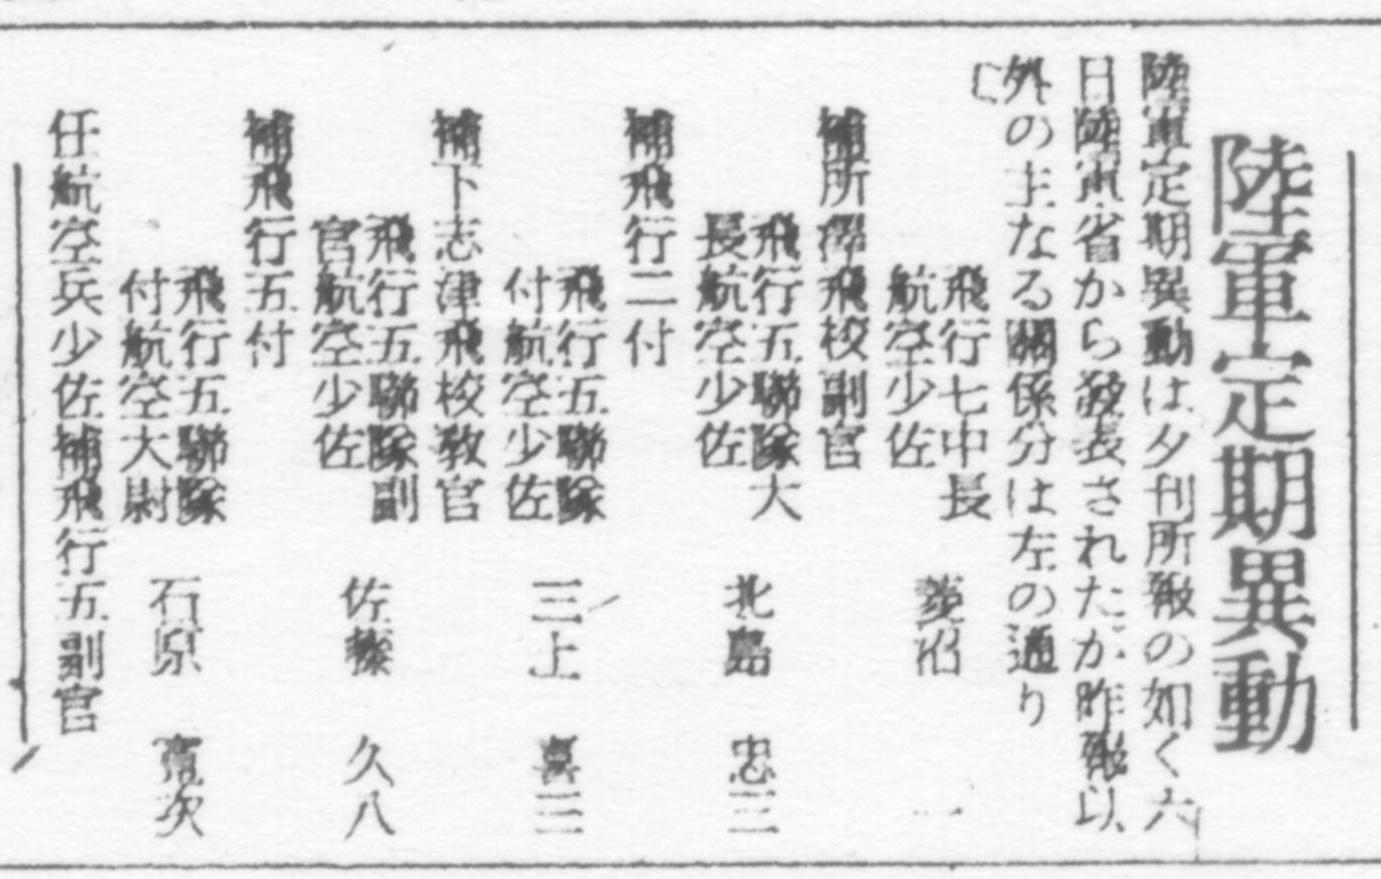 陸軍定期異動
陸軍定期異動は夕刊所報の如く六
日陸軍省から発表されたが昨報以
外の主なる關係分は左の通り
飛行七中長
航空少佐
菱沼 一
補所澤飛校副官
飛行五聯隊大
長航空少佐
北島 忠三
補飛行二付
飛行五聯隊
付航空少佐
三上 喜三
補下志津飛校教官
飛行五聯隊副
官航空少佐
佐藤 久八
補飛行五付
飛行五聯隊
付航空大尉
石原 寛次
任航空兵少佐補飛行五副官